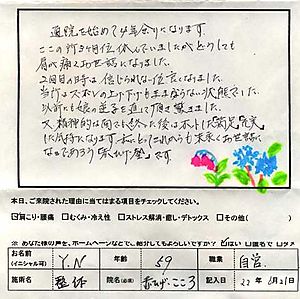 通院を始めて4年余りになります。
ここの所3ヶ月位休んでいましたがどうしても
肩が痛くお世話になりました。
2回目の時は信じられない位良くなりました。
当時はズボンの上げ下げもままならない状態でした。
以前にも娘の逆子を直して頂き驚きました。
又、精神的な面でも終った後は本当に満足、充実
した気持になります。私にとってこれからも末永くお世話に
なるであろう です。
本日、ご来院された理由に当てはまる項目をチェックしてください。
☑肩こり・腰痛 □むくみ・冷え性 □ストレス解消・癒し・デトックス □その他( )
※あなた様の声を、ホームページなどでご紹介してもよろしいですか？ ☑はい □匿名で
お名前 (イニシャル可) Y.N 年齢 59 職業 自営
施術名 整体 院名(必須) こころ 記入日 22年6月21日